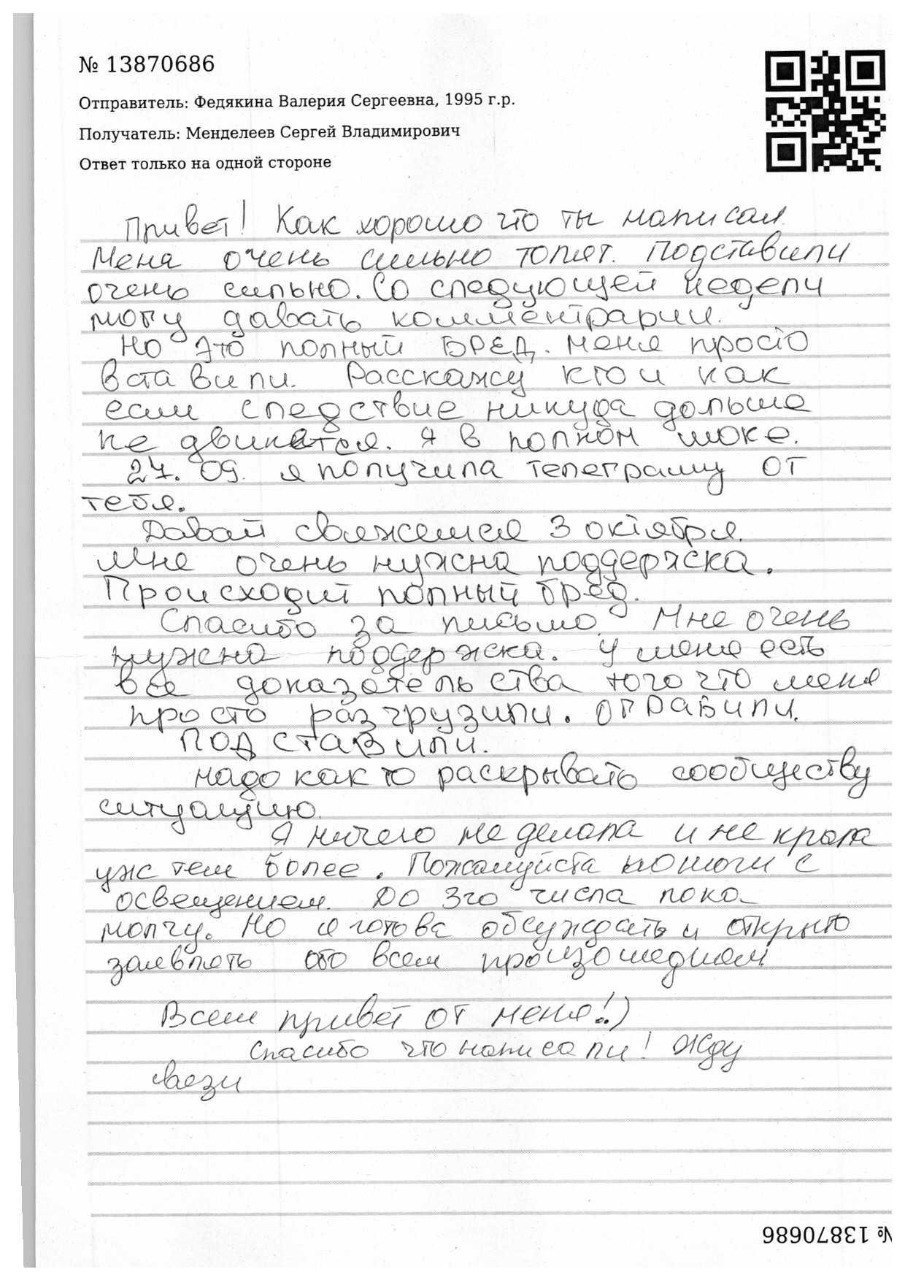 № 13870686
Отправитель: Федякина Валерия Сергеевна, 1995 г.р.
Получатель: Менделеев Сергей Владимирович
Ответ только на одной стороне
Привет! Как хорошо что ты написал
Меня очень сильно топят. Подставили
очень сильно. Со следующей недели
могу давать комментрарии.
Но это полный БРЕД. меня просто
вставили. Расскажу кто и как
если следствие никуда дальше
не двинется. Я в полном шоке.
27.09. я получила телеграмму от
тебя.
Давай свяжемся 3 октября.
Мне очень нужна поддержка.
Происходит полный бред.
Спасибо за письмо. Мне очень
нужна поддержка. У меня есть
все доказательства того что меня
просто разгрузили. ограбили.
подставили.
надо как то раскрывать сообществу
ситуацию.
Я ничего не делала и не крала
уж тем более. Пожалуйста помоги с
освещением. До 3го числа пока
молчу. Но я готова обсуждать и открыто
заявлять обо всем произошедшем
Всем привет от меня!:)
Спасибо что написали! Жду
связи
№ 13870686